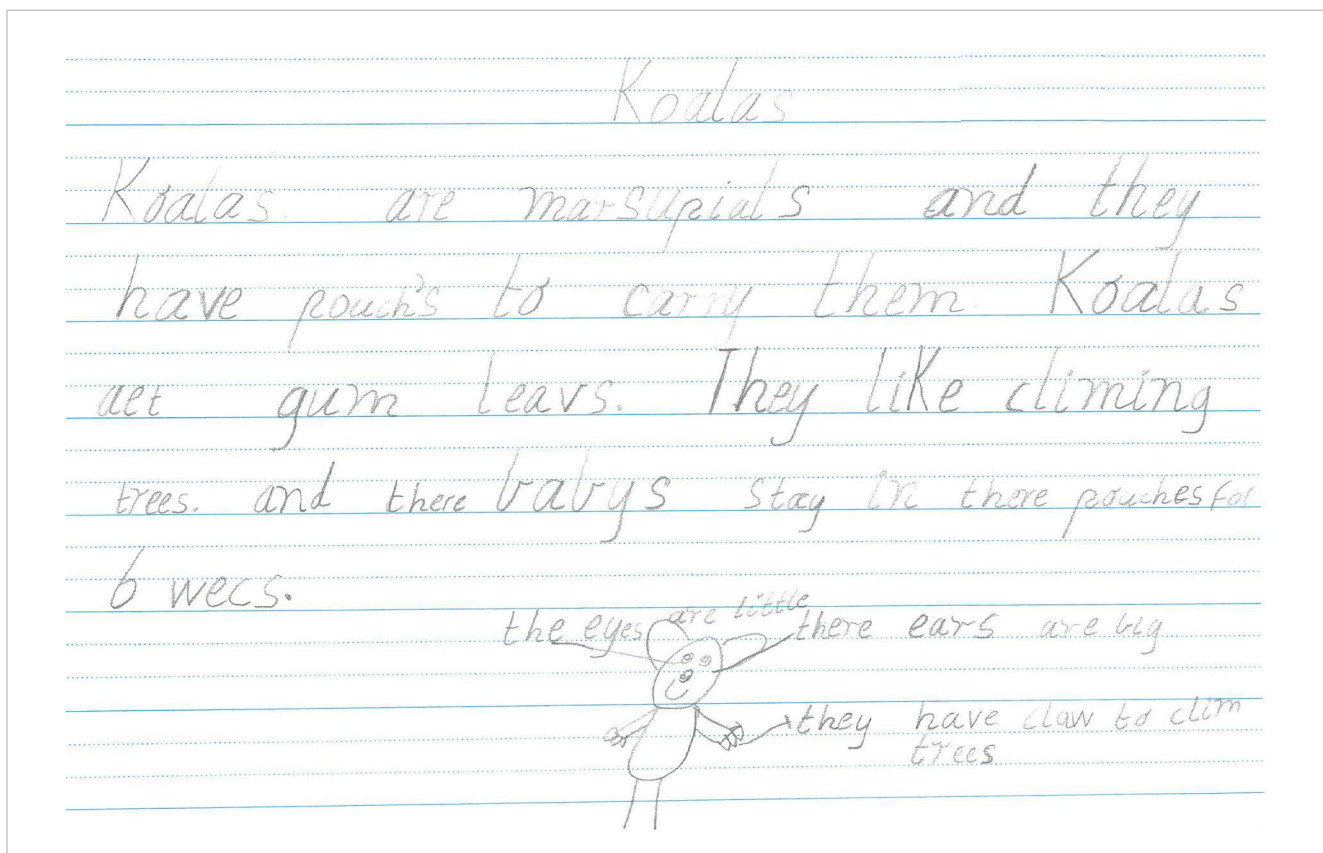 Koalas
Koalas. are marsupials and they
have pouch's to carry them. Koalas
aet gum leavs. They like climing
trees. and there babys stay in there pouches for
6 wecs.
the eyes are little
there ears are big
they have claw to clim
trees